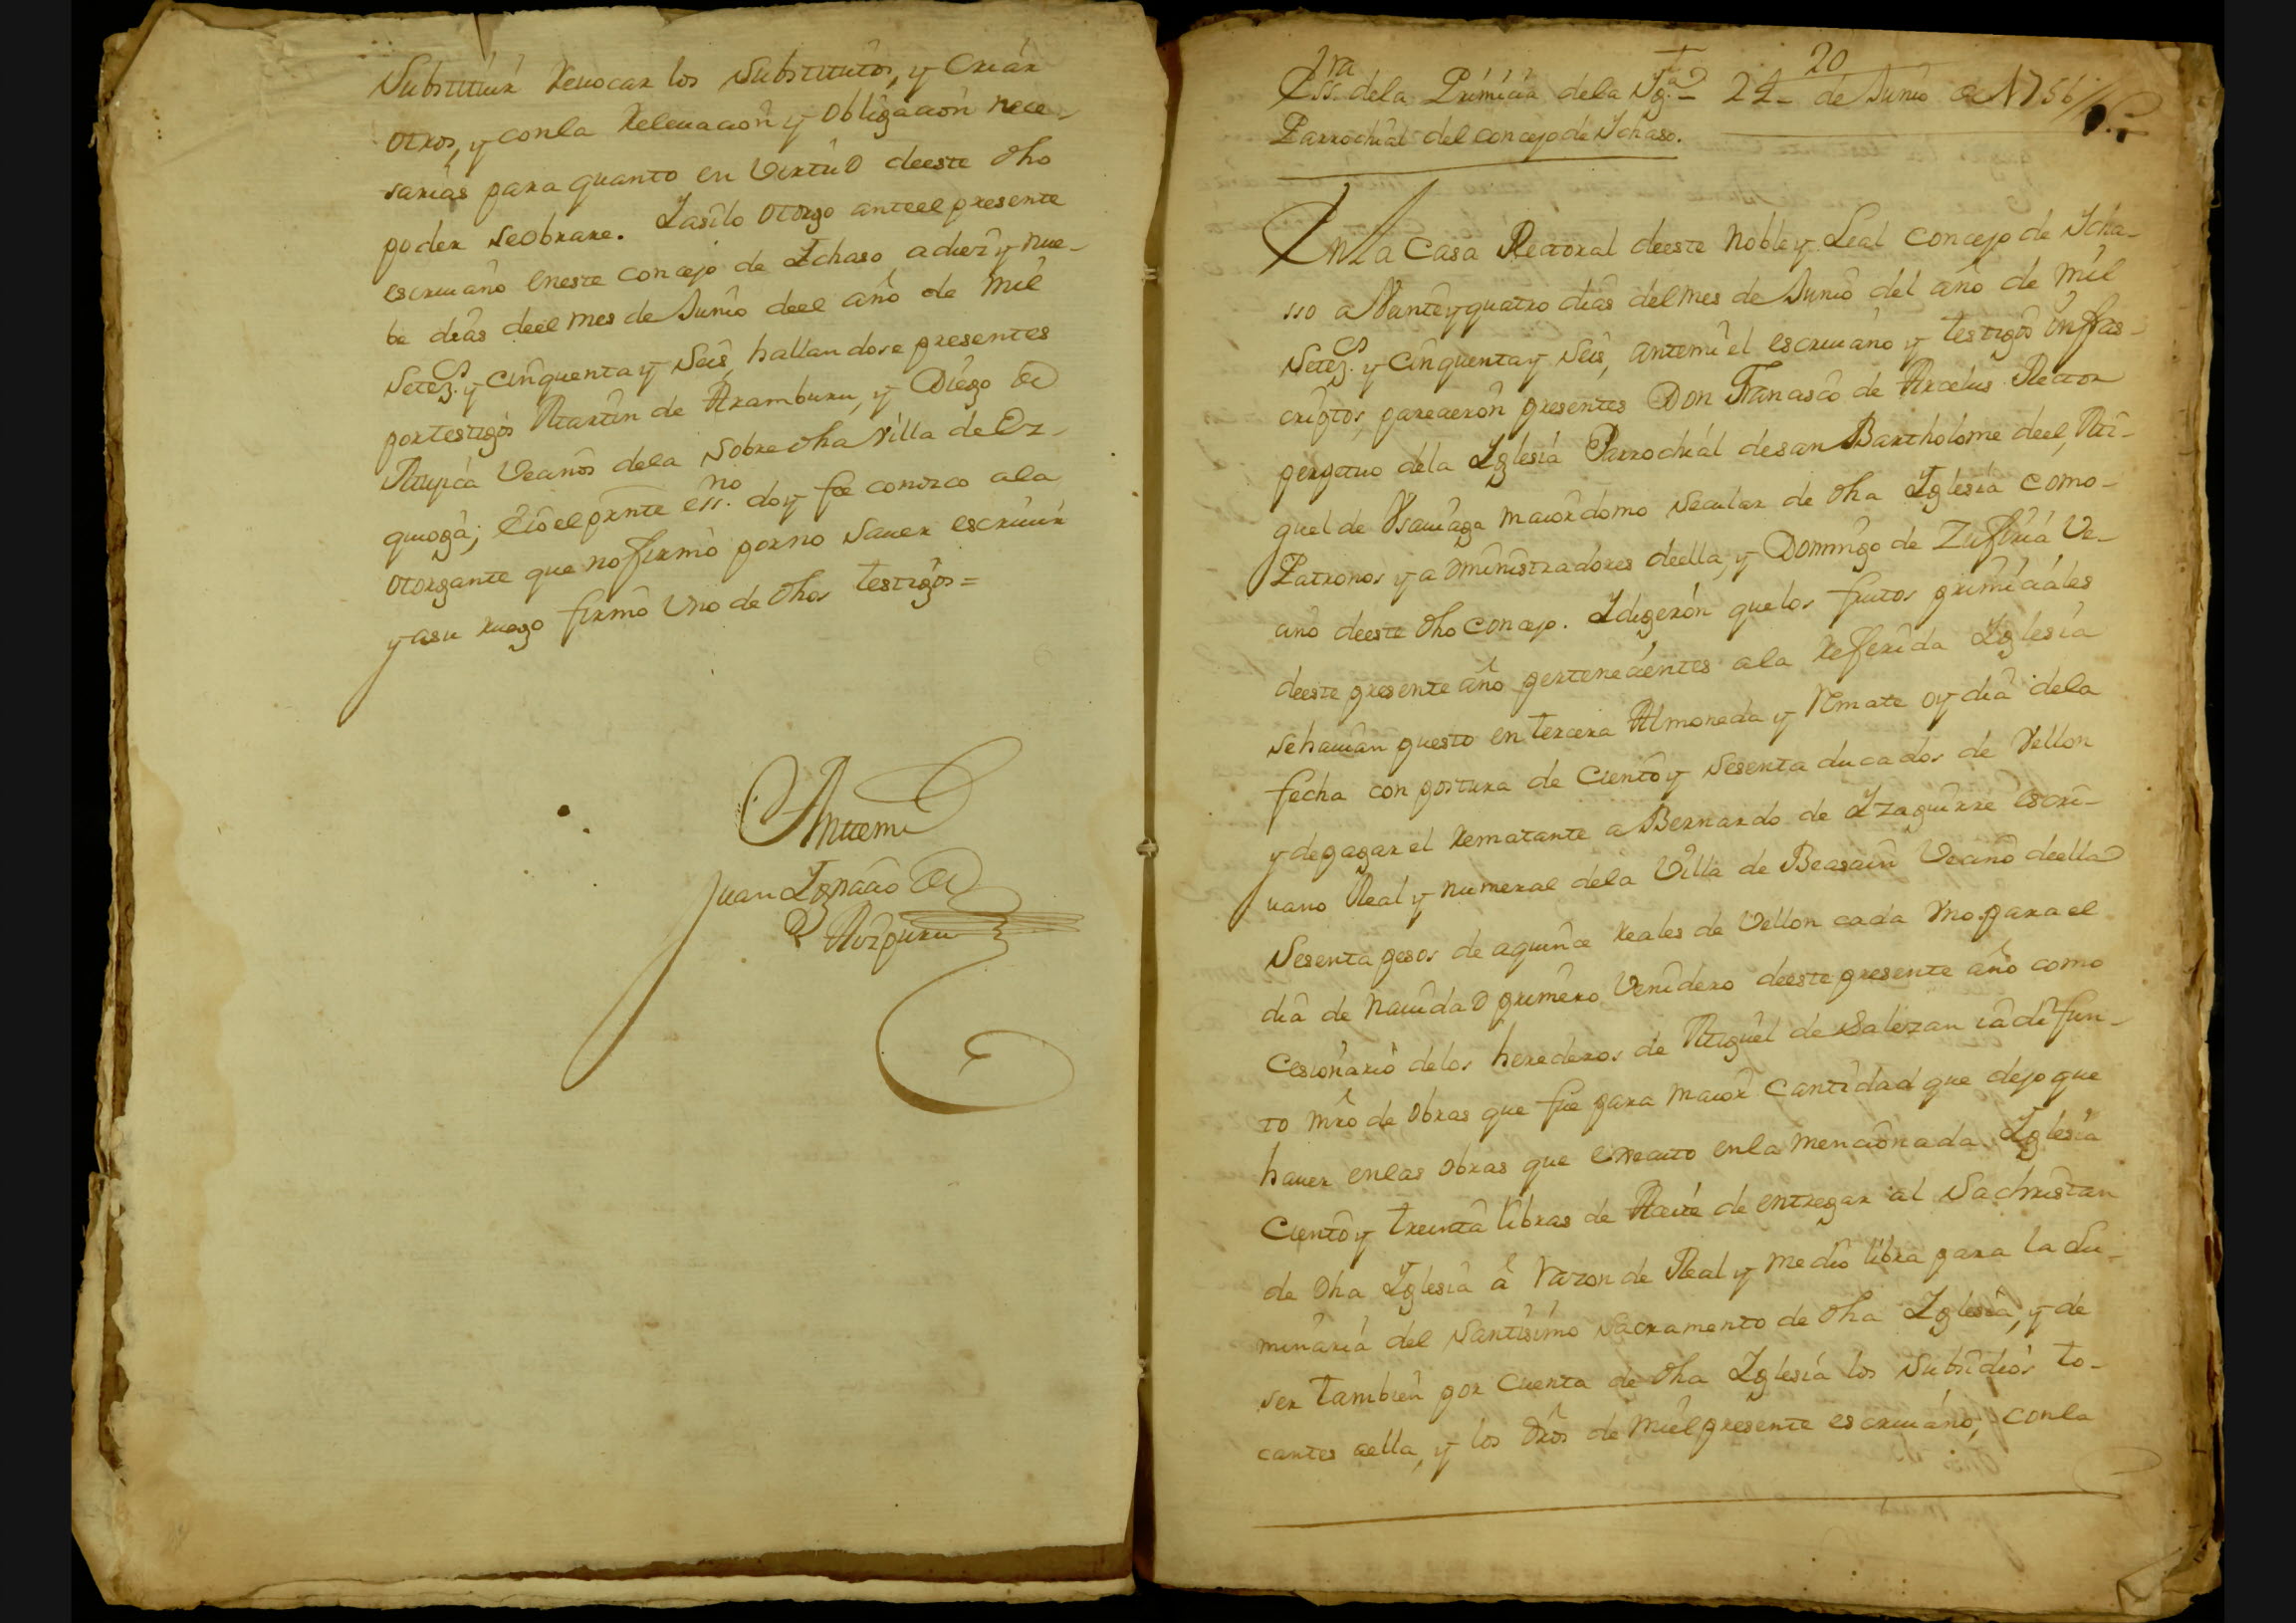 Substituir Revocar los Substitutos, y Criar
otros, y con la Relevacion y obligacion nece-
sarias para quanto en Virtud deeste dho
poder se obrare. Y asi lo otorgo anteel presente
escriuano eneste concejo de Ichaso a diez y nue-
be dias deel mes de Junio deel año de mil
Setez.s y cinquenta y Seis, hallandose presentes
por testigos Martin de Aramburu, y Diego de
Mugica Vecinos dela Sobre dha Villa de Or-
quioga; E io el prnte ess.no doy fee conozco a la
otorgante que no firmo por no Saver escriuir
y asu ruego firmo Uno de dhos testigos =
Antemi
Juan Ignacio de
Aizpuru
20
Ess.ra dela Primicia dela Yg.a 24 de Junio de 1756
Parrochial del concejo de Ichaso.
En la Casa Rectoral deeste Noble y Leal concejo de Icha-
sso a Vante y quatro dias del mes de Junio del año de mil
Setez.s y Cinquenta y Seis, antemi el escriuano y testigos infras-
criptos, parecieron presentes Don Francisco de Arcelus Rector
perpetuo dela Iglesia Parrochial de san Bartholome deel, Mi-
guel de Usauiaga maiordomo Secular de dha Iglesia como
Patronos y administradores deella, y Domingo de Zufiria Ve-
cino deeste dho concejo. I digeron quelos frutos primiciales
deeste presente año pertenecientes ala Referida Iglesia
se hauian puesto en tercera Almoneda y Rmate oy dia dela
fecha con postura de ciento y Sesenta ducados de Vellon
y depagar el Rematante a Bernardo de Izaguirre escri-
uano Real y numeral dela Villa de Beasain Vecino deella
Sesenta pesos de aquince Reales de Vellon cada Vno para el
dia de Nauidad primero Venidero deeste presente año como
Cesionario delos herederos de Miguel de Salezan ia difun-
to mro de obras que fue para maior Cantidad que dejo que
hauer enlas obras que executo enla mencionada Iglesia
Ciento y treinta libras de Aceite de entregar al Sachristan
de dha Iglesia á Razon de Real y medio libra para la Lu-
minaria del Santisimo Sacramento de dha Iglesia, y de
ser tambien por cuenta de dha Iglesia los Subsidios to-
cantes aella, y los dros de miel presente escriuano, con la